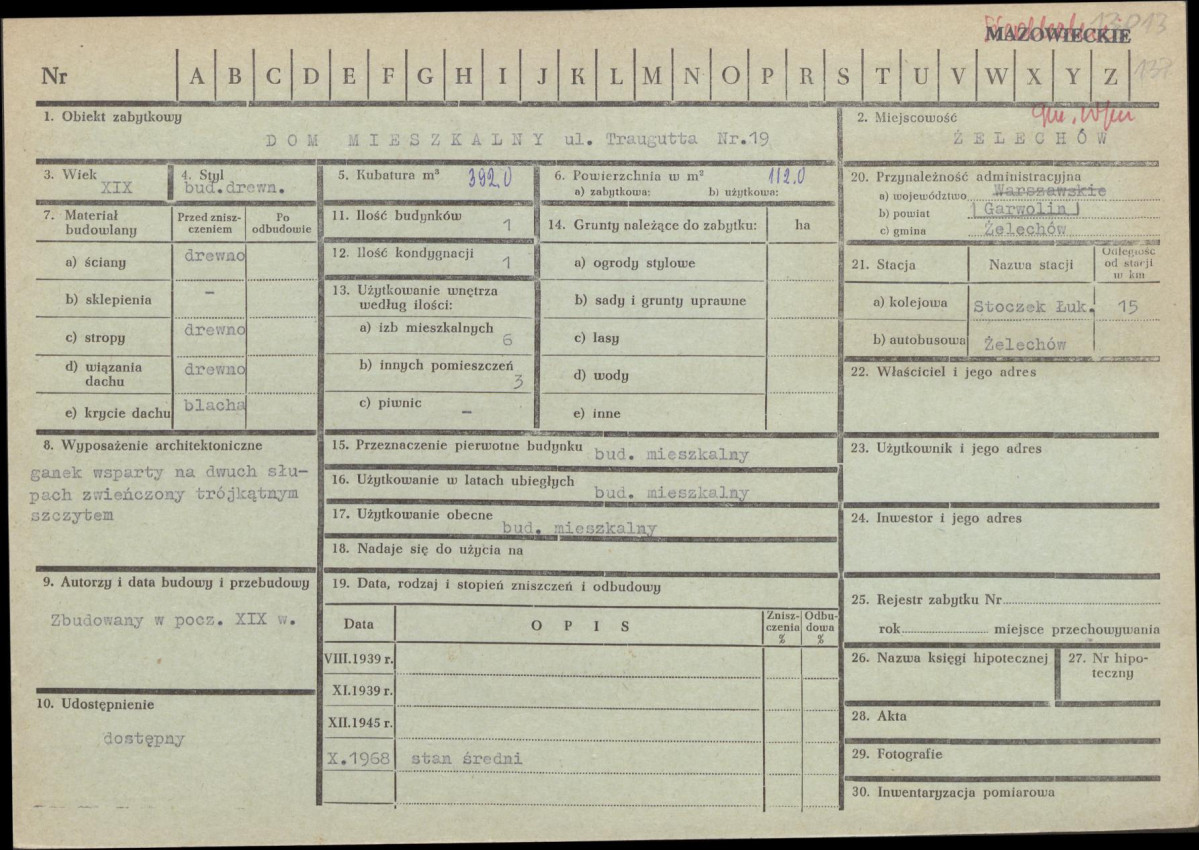 13013
MAZOWIECKIE
Nr A B C D E F G H I J K L M N O P R S T U V W X Y Z 137
1. Obiekt zabytkowy
DOM MIESZKALNY ul. Traugutta Nr.19
2. Miejscowość
gm. 
ŻELECHÓW
3. Wiek
XIX
4. Styl
bud.drewn.
5. Kubatura m³ 392.0
6. Powierzchnia w m² 112.0
a) zabytkowa: b) użytkowa:
20. Przynależność administracyjna
a) województwo Warszawskie
b) powiat Garwolin
c) gmina Żelechów
7. Materiał budowlany
Przed zniszczeniem
Po odbudowie
a) ściany drewno
b) sklepienia –
c) stropy drewno
d) wiązania dachu drewno
e) krycie dachu blacha
11. Ilość budynków 1
12. Ilość kondygnacji 1
13. Użytkowanie wnętrza
według ilości:
a) izb mieszkalnych 6
b) innych pomieszczeń 3
c) piwnic –
14. Grunty należące do zabytku: ha
a) ogrody stylowe
b) sady i grunty uprawne
c) lasy
d) wody
e) inne
21. Stacja
Nazwa stacji
Odległość od stacji w km
a) kolejowa Stoczek Łuk. 15
b) autobusowa Żelechów
22. Właściciel i jego adres
8. Wyposażenie architektoniczne
ganek wsparty na dwuch słu-
pach zwieńczony trójkątnym
szczytem
15. Przeznaczenie pierwotne budynku bud. mieszkalny
16. Użytkowanie w latach ubiegłych bud. mieszkalny
17. Użytkowanie obecne bud. mieszkalny
18. Nadaje się do użycia na
23. Użytkownik i jego adres
24. Inwestor i jego adres
9. Autorzy i data budowy i przebudowy
Zbudowany w pocz. XIX w.
19. Data, rodzaj i stopień zniszczeń i odbudowy
Data OPIS Zniszczenia % Odbudowa %
VIII.1939 r.
XI.1939 r.
XII.1945 r.
X.1968 stan średni
10. Udostępnienie
dostępny
25. Rejestr zabytku Nr
rok miejsce przechowywania
26. Nazwa księgi hipotecznej
27. Nr hipoteczny
28. Akta
29. Fotografie
30. Inwentaryzacja pomiarowa